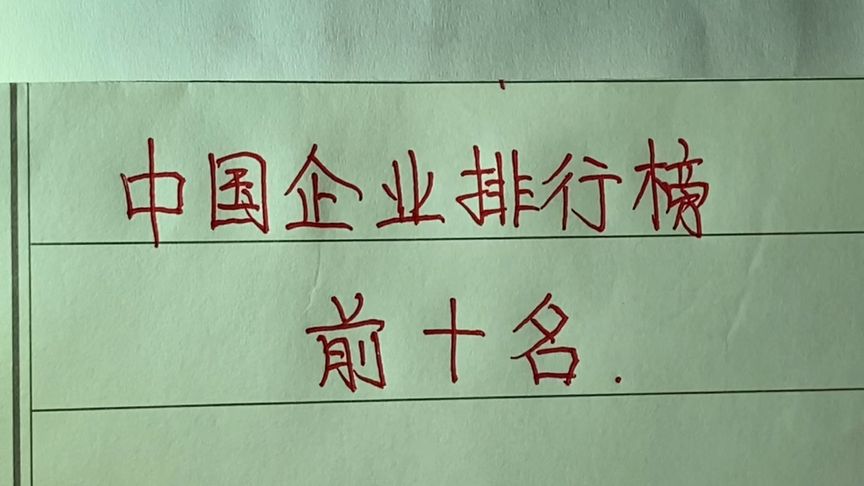 中国企业排行榜
前十名.